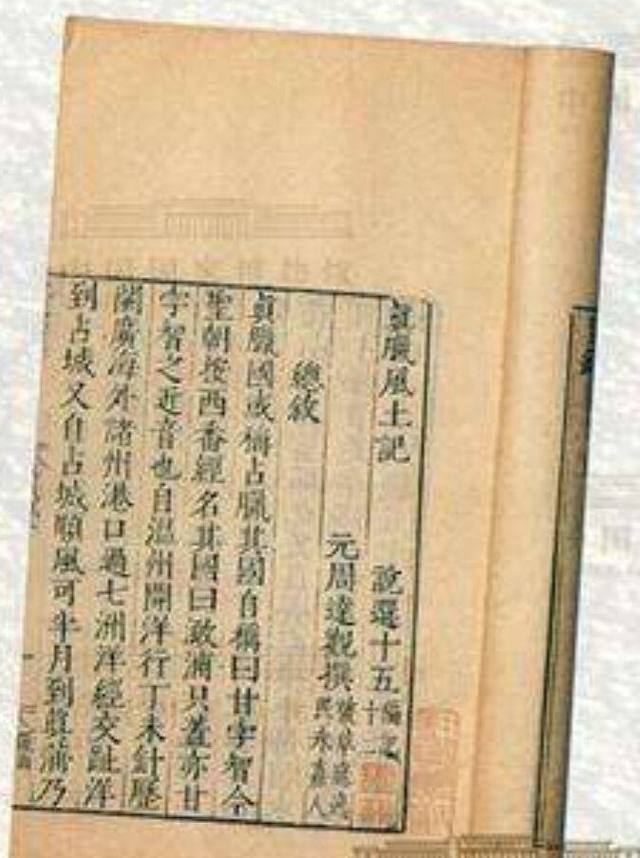 眞臘風土記 說選十五
十二
元周達觀撰
民永嘉人
總敘
眞臘國或稱占臘其國自稱曰甘孛智今
聖朝按西番經名其國曰澉浦只蓋亦甘
孛智之近音也自溫州開洋行丁未針歷
閩廣海外諸州港口過七洲洋經交趾洋
到占城又自占城順風可半月到眞蒲乃